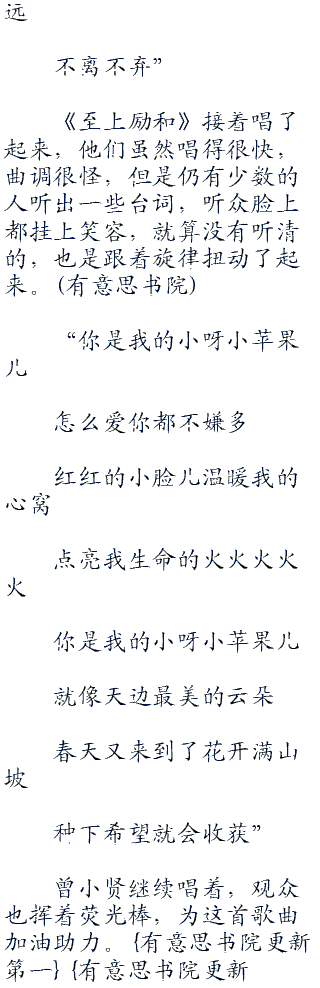 远
不离不弃”
《至上励和》接着唱了
起来，他们虽然唱得很快，
曲调很怪，但是仍有少数的
人听出一些台词，听众脸上
都挂上笑容，就算没有听清
的，也是跟着旋律扭动了起
来。(有意思书院)
“你是我的小呀小苹果
儿
怎么爱你都不嫌多
红红的小脸儿温暖我的
心窝
点亮我生命的火火火火
火
你是我的小呀小苹果儿
就像天边最美的云朵
春天又来到了花开满山
坡
种下希望就会收获”
曾小贤继续唱着，观众
也挥着荧光棒，为这首歌曲
加油助力。{有意思书院更新
第一}{有意思书院更新